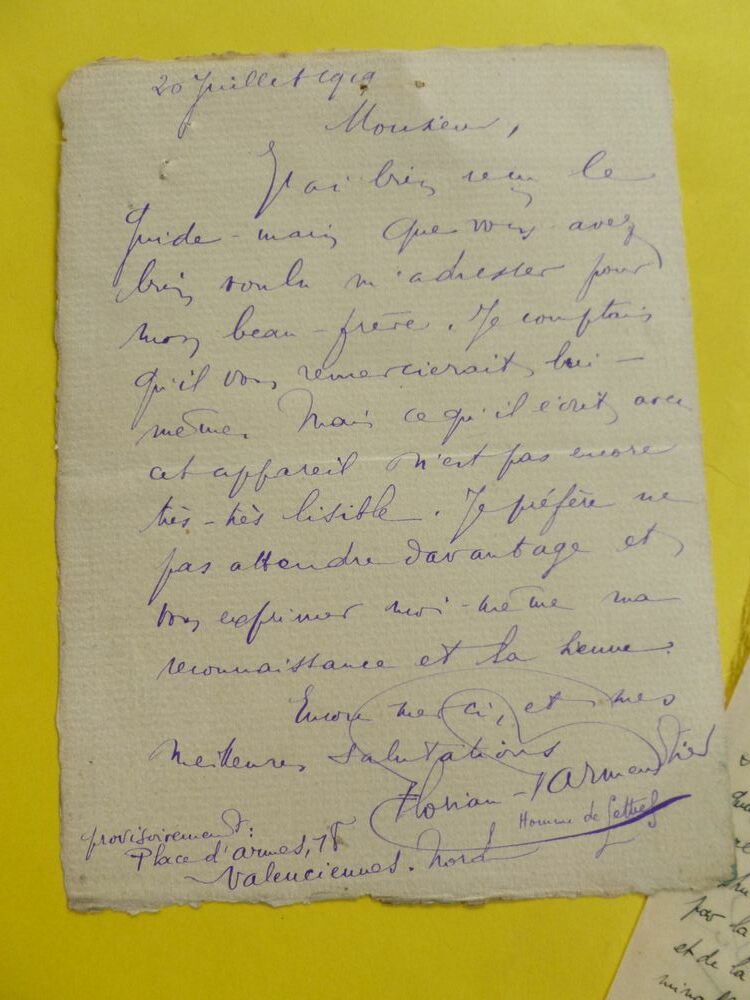 20 Juillet 1919
Monsieur,
J'ai bien reçu le
guide-main que vous avez
bien voulu m'adresser pour
mon beau-frère. Je comptais
qu'il vous remercierait lui-
même. Mais ce qu'il écrit avec
cet appareil n'est pas encore
très-très lisible. Je préfère ne
pas attendre davantage et
vous exprimer moi-même ma
reconnaissance et la sienne.
Encore merci, et mes
meilleures salutations
Florian-Parmentier
Homme de Lettres
provisoirement:
Place d'armes, 18
Valenciennes. Nord
par la
et de la